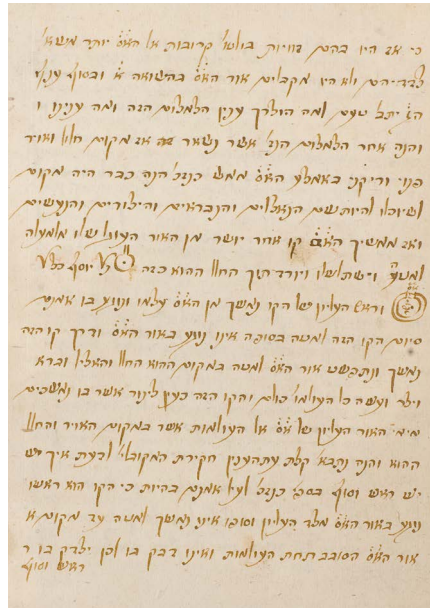 כי אז היו בהם זויות בולטו' קרובות אל הא"ס יותר משא'
צדדיהם ולא היו מקבלים אור הא"ס בהשואה א' ובסוף ענף
הב' יתב' טעם למה הוצרך ענין הצמצום הזה ומה עניינו
והנה אחר הצמצום הנז' אשר נשאר אז מקום חלול ואויר
פנוי וריקני באמצע הא"ס ממש כנז' הנה כבר היה מקום
שיוכלו להיות שם הנאצלים והנבראים והיצורים והנעשים
ואז המשיך הא"ס קו אחד יושר מן האור העגול שלו מלמעלה
למטה וישתלשל ויורד תוך החלל ההוא כזה
וראש העליון של הקו נמשך מן הא"ס עצמו ונוגע בו אמנם
סיום הקו הזה למטה בסופה אינו נוגע באור הא"ס ודרך קו הזה
נמשך ונתפשט אור הא"ס למטה במקום ההוא החלל והאציל וברא
ויצר ועשה כל העולמו' כולם והקו הזה כעין צינור אשר בו נמשכים
מימי האור העליון של א"ס אל העולמות אשר במקום האויר והחלל
ההוא והנה נתבא' קצת עתה ענין חקירת המקובלי' לדעת איך יש
יש ראש וסוף בספי' כנז' לעיל אמנם בהיות כי הקו הוא ראשו
נוגע באור הא"ס מצד העליון וסופו אינו נמשך למטה עד מקום
אור הא"ס הסובב תחת העולמות ואינו דבק בו לכן יצדק בו
ראש וסוף